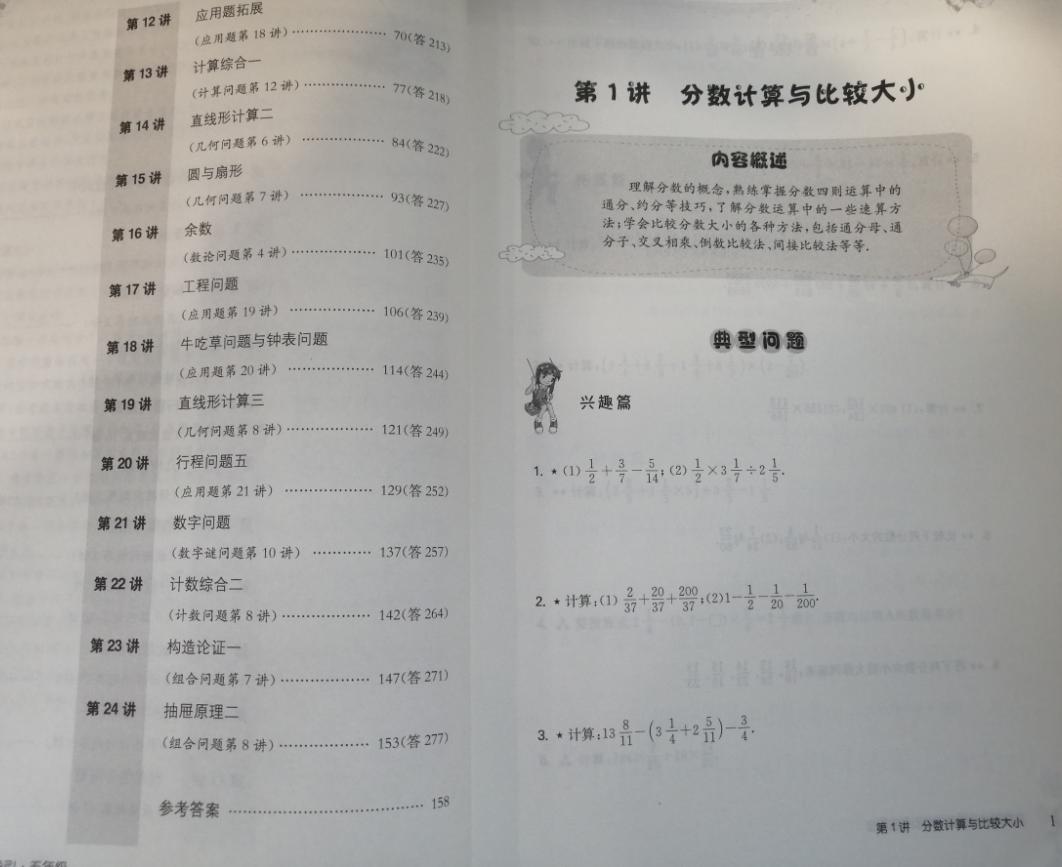 第 12 讲 应用题拓展
(应用题第 18 讲) ………………… 70(答 213)
第 13 讲 计算综合一
(计算问题第 12 讲) ……………… 77(答 218)
第 14 讲 直线形计算二
(几何问题第 6 讲) ……………… 84(答 222)
第 15 讲 圆与扇形
(几何问题第 7 讲) ……………… 93(答 227)
第 16 讲 余数
(数论问题第 4 讲) ……………… 101(答 235)
第 17 讲 工程问题
(应用题第 19 讲) ……………… 106(答 239)
第 18 讲 牛吃草问题与钟表问题
(应用题第 20 讲) ……………… 114(答 244)
第 19 讲 直线形计算三
(几何问题第 8 讲) ……………… 121(答 249)
第 20 讲 行程问题五
(应用题第 21 讲) ……………… 129(答 252)
第 21 讲 数字问题
(数字谜问题第 10 讲) ………… 137(答 257)
第 22 讲 计数综合二
(计数问题第 8 讲) ……………… 142(答 264)
第 23 讲 构造论证一
(组合问题第 7 讲) ……………… 147(答 271)
第 24 讲 抽屉原理二
(组合问题第 8 讲) ……………… 153(答 277)
参考答案 ………………………………… 158
第 1 讲 分数计算与比较大小
内容概述
理解分数的概念,熟练掌握分数四则运算中的
通分、约分等技巧,了解分数运算中的一些速算方
法;学会比较分数大小的各种方法,包括通分母、通
分子、交叉相乘、倒数比较法、间接比较法等等.
典型问题
兴趣篇
1. ★ (1) 1/2 + 3/7 − 5/14; (2) 1/2 × 3 1/7 ÷ 2 1/5.
2. ★ 计算:(1) 2/37 + 20/37 + 200/37; (2) 1 − 1/2 − 1/20 − 1/200.
3. ★ 计算:13 8/11 − (3 1/4 + 2 5/11) − 3/4.
第 1 讲 分数计算与比较大小 1